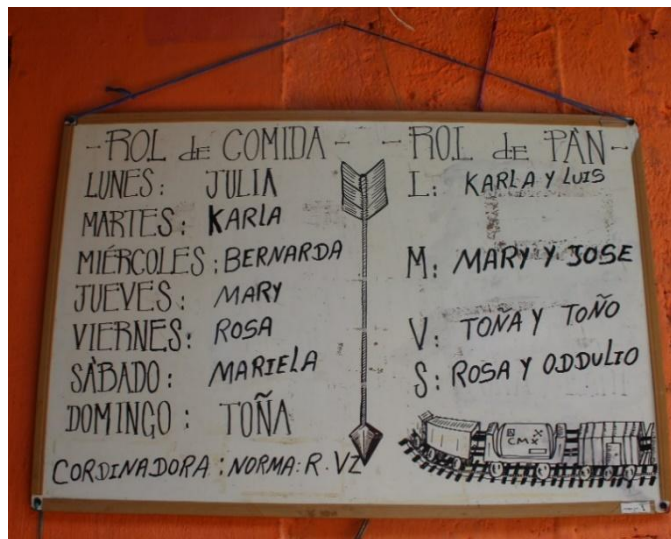 -ROL de COMIDA-
LUNES: JULIA
MARTES: KARLA
MIÉRCOLES: BERNARDA
JUEVES: MARY
VIERNES: ROSA
SÁBADO: MARIELA
DOMINGO: TOÑA
CORDINADORA: NORMA: R. VZ
-ROL de PAN-
L: KARLA Y LUIS
M: MARY Y JOSE
V: TOÑA Y TOÑO
S: ROSA Y ODDULIO
CMX